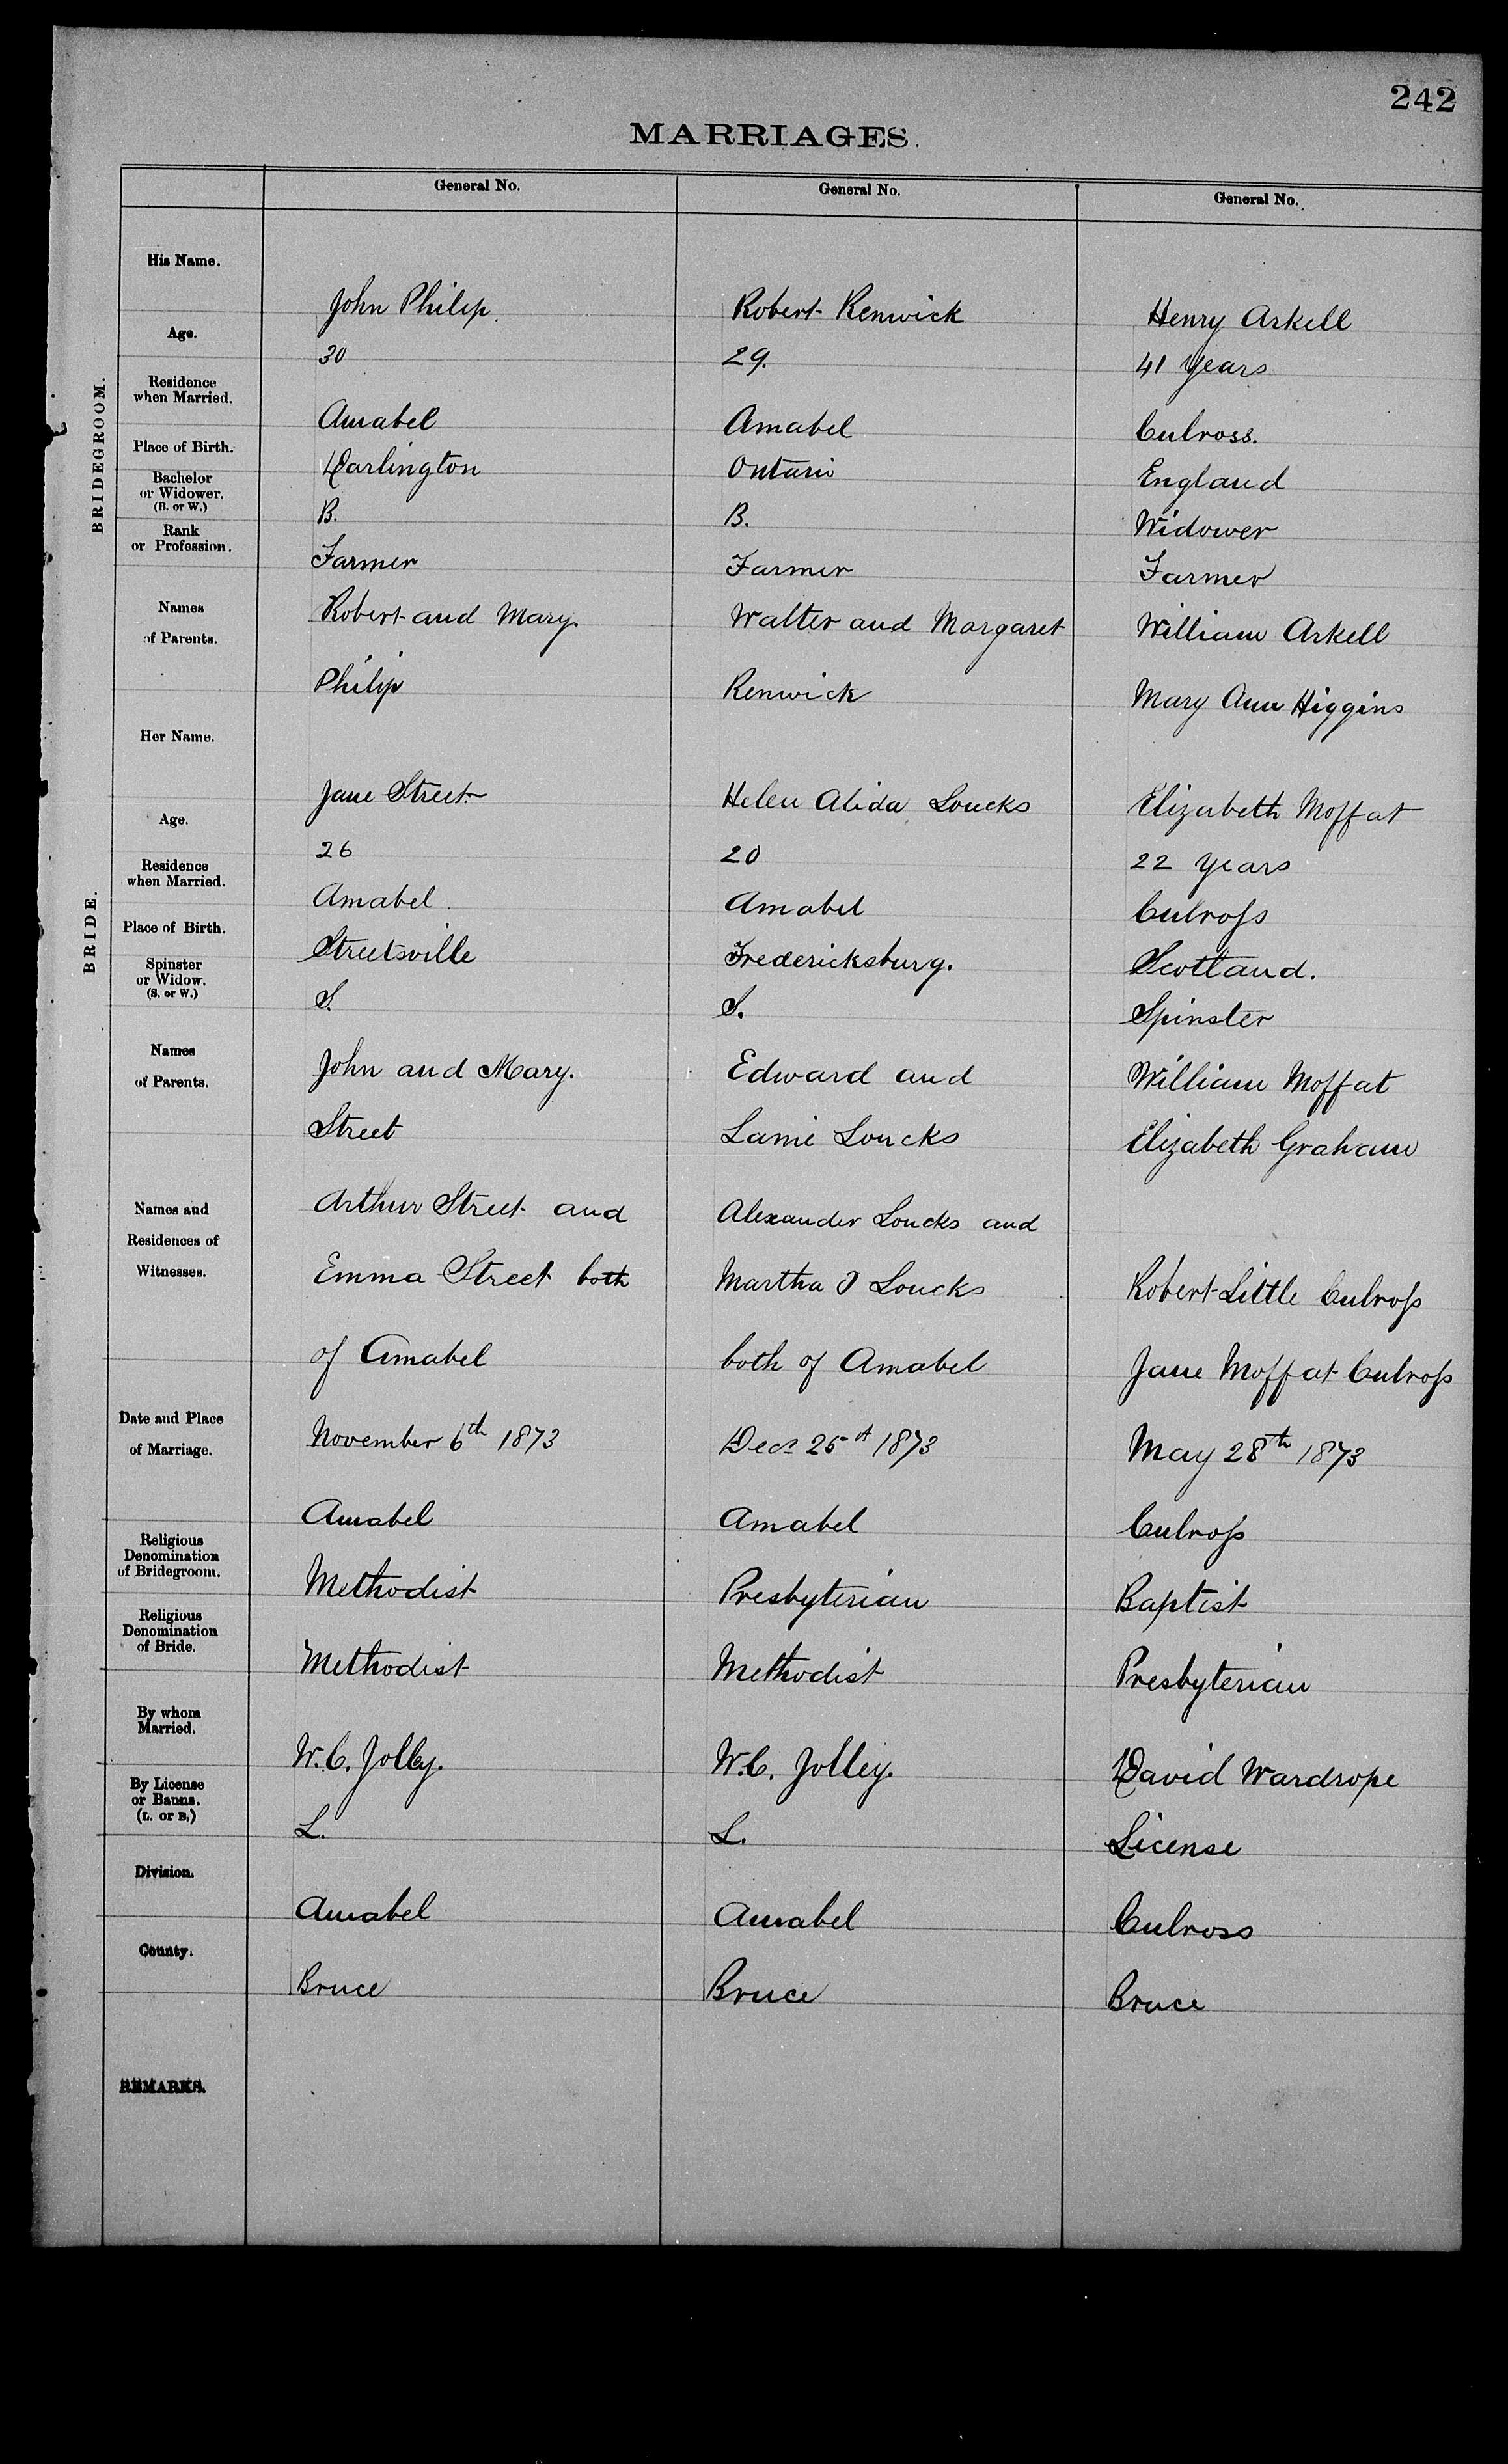 242
MARRIAGES.
General No. General No. General No.
BRIDEGROOM.
His Name. John Philip Robert Renwick Henry Arkell
Age. 30 29. 41 years
Residence when Married. Amabel Amabel Culross.
Place of Birth. Darlington Ontario England
Bachelor or Widower. (B. or W.) B. B. Widower
Rank or Profession. Farmer Farmer Farmer
Names of Parents. Robert and Mary. Walter and Margaret William Arkell
Philip Renwick Mary Ann Higgins
BRIDE.
Her Name. Jane Street Helen Alida Loucks Elizabeth Moffat
Age. 26 20 22 years
Residence when Married. Amabel Amabel Culross
Place of Birth. Streetsville Fredericksburg. Scotland.
Spinster or Widow. (S. or W.) S. S. Spinster
Names of Parents. John and Mary. Edward and William Moffat
Street Lamie Loucks Elizabeth Graham
Names and Residences of Witnesses. Arthur Street and Alexander Loucks and
Emma Street both Martha J Loucks Robert Little Culross
of Amabel both of Amabel Jane Moffat Culross
Date and Place of Marriage. November 6th 1873 Decr 25th 1873 May 28th 1873
Amabel Amabel Culross
Religious Denomination of Bridegroom. Methodist Presbyterian Baptist
Religious Denomination of Bride. Methodist Methodist Presbyterian
By whom Married. W. C. Jolley. W. C. Jolley. David Wardrope
By License or Banns. (L. or B.) L. L. License
Division. Amabel Amabel Culross
County. Bruce Bruce Bruce
REMARKS.